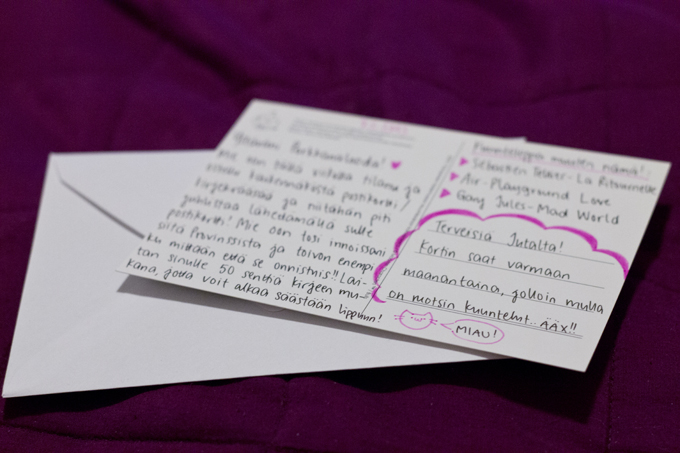 Parkkonalaeda!
Mie oon tällä viikolla tilannu ja
postikortti /
kirjekräässää ja niitähän piti
juhlistaa lähettämällä sulle
postikortti! Mie oon tosi innoissani
siitä Provinssista ja toivon enempi
ku mittään että se onnistuis!! Lai-
tan sinulle 50 senttiä kirjeen mu-
kana, jotta voit alkaa säästään lippuun!
muuten nämä!
Sébastien Tellier - La Ritournelle
Air - Playground Love
Gary Jules - Mad World
Terveisiä Jutalta!
Kortin saat varmaan
maanantaina, jolloin mulla
on ruotsin kuuntelut.. ÄÄX!!
MIAU!